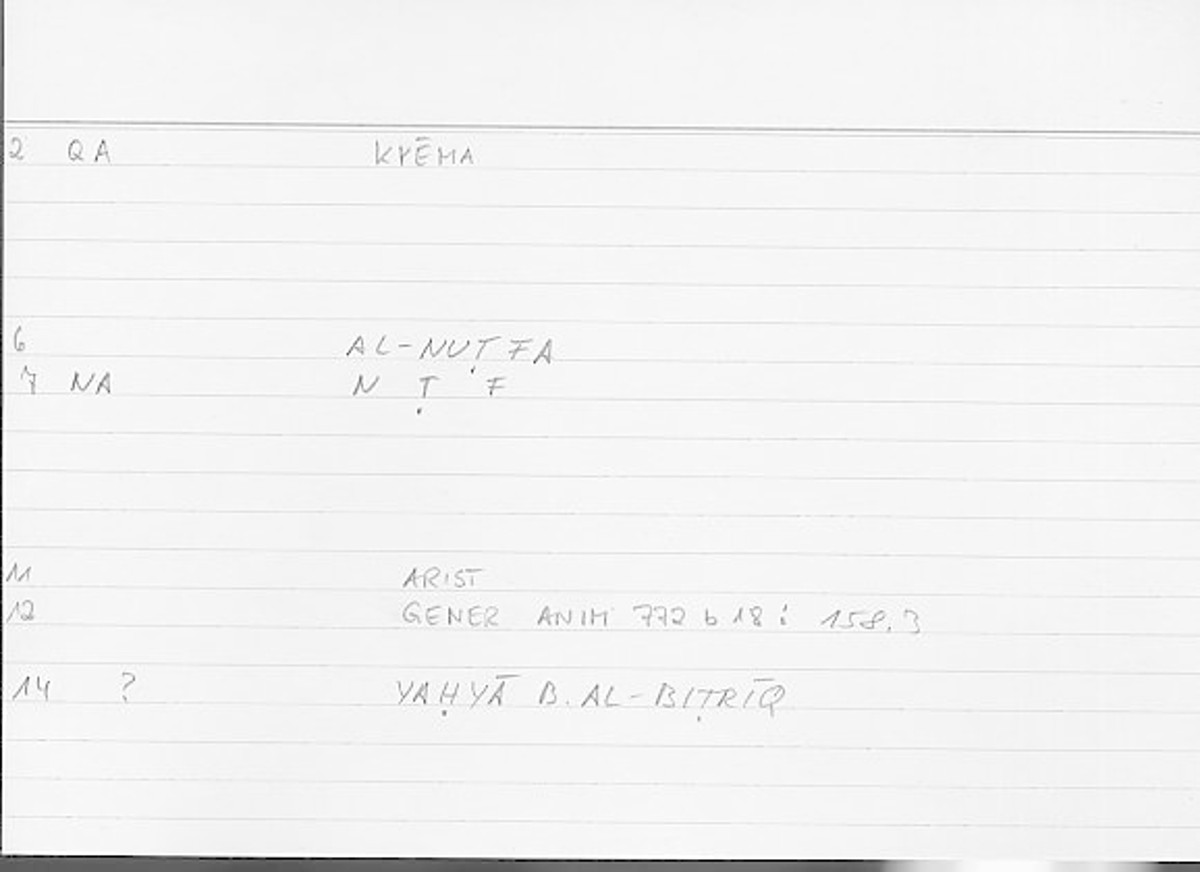 2 QA KYĒMA
6 AL-NUṬFA
7 NA N Ṭ F
11 ARIST
12 GENER ANIM 772 b 18 ; 158.3
14 ? YAḤYĀ B. AL-BIṬRĪQ